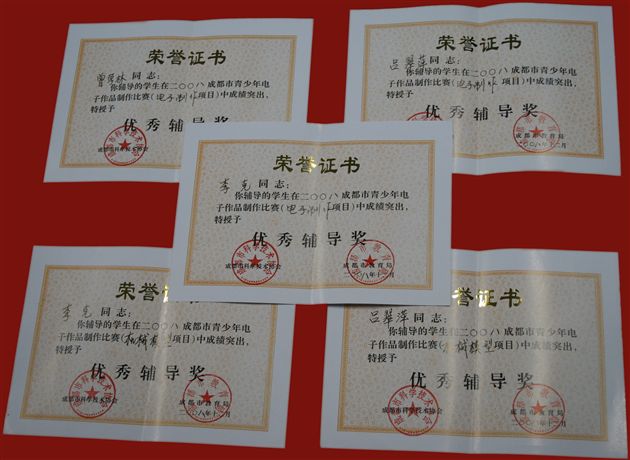 荣誉证书
同志:
你辅导的学生在二〇〇八成都市青少年电
子作品制作比赛(电子制作项目)中成绩突出,
特授予
优秀辅导奖
成都市科学技术协会
荣誉证书
吕翠萍同志:
你辅导的学生在二〇〇八成都市青少年电
子作品制作比赛(电子制作项目)中成绩突出,
特授予
优秀辅导奖
成都市教育局
二〇〇八年十二月
荣誉证书
李克同志:
你辅导的学生在二〇〇八成都市青少年电
子作品制作比赛(电子制作项目)中成绩突出,
特授予
优秀辅导奖
成都市科学技术协会
成都市教育局
二〇〇八年十二月
荣誉证书
李克同志:
你辅导的学生在二〇〇八成都市青少年电
子作品制作比赛(机械模型项目)中成绩突出,
特授予
优秀辅导奖
成都市科学技术协会
成都市教育局
二〇〇八年十二月
誉证书
吕翠萍同志:
你辅导的学生在二〇〇八成都市青少年电
子作品制作比赛(机械模型项目)中成绩突出,
特授予
优秀辅导奖
成都市科学技术协会
成都市教育局
二〇〇八年十二月